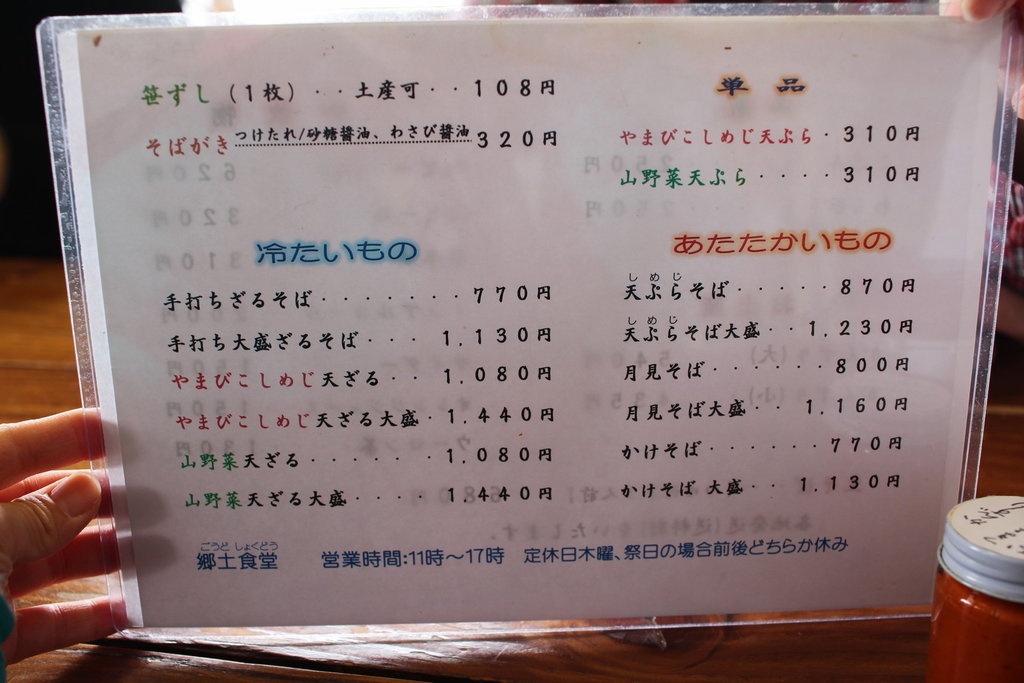 笹ずし（1枚）・・土産可・・108円
そばがき つけたれ/砂糖醤油、わさび醤油 320円
冷たいもの
手打ちざるそば・・・・・・・770円
手打ち大盛ざるそば・・・1,130円
やまびこしめじ天ざる・・1,080円
やまびこしめじ天ざる大盛・1,440円
山野菜天ざる・・・・・1,080円
山野菜天ざる大盛・・・・1,440円
単品
やまびこしめじ天ぷら・310円
山野菜天ぷら・・・・310円
あたたかいもの
しめじ
天ぷらそば・・・・・870円
しめじ
天ぷらそば大盛・・1,230円
月見そば・・・・・・800円
月見そば大盛・・1,160円
かけそば・・・・・・770円
かけそば 大盛・・1,130円
ごうど しょくどう
郷土食堂 営業時間:11時～17時 定休日木曜、祭日の場合前後どちらか休み